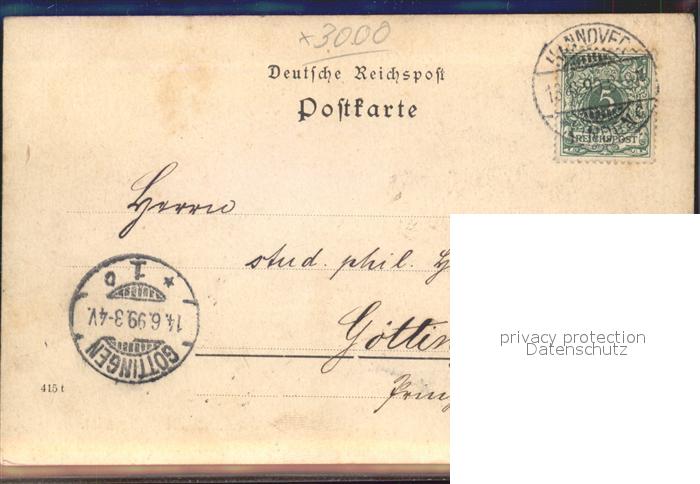 ×3000
Deutsche Reichspost
Postkarte
HANNOVER
5
REICHSPOST
Herrn
stud. phil. H
Götting
Prinz
GÖTTINGEN
14.6.99.3-4V.
* 1 c
415 t
privacy protection
Datenschutz